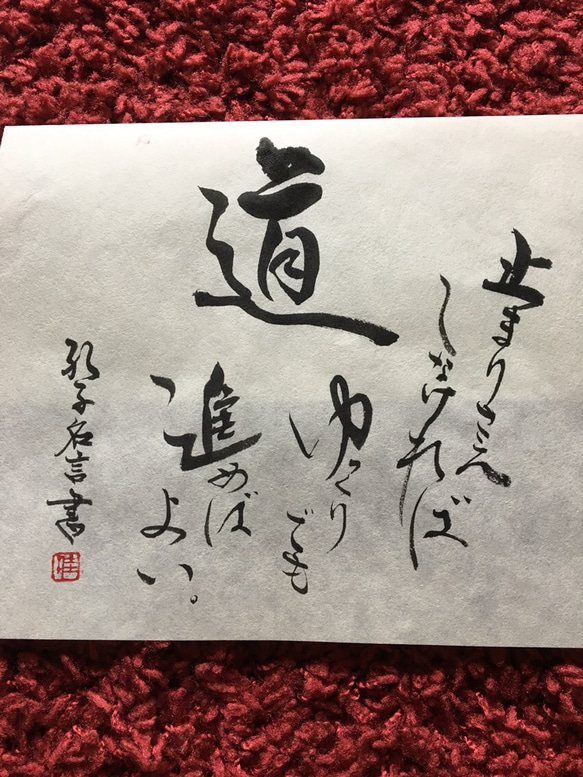 道
止まりさえ
しなければ
ゆっくり
でも
進めば
よい。
孔子名言書